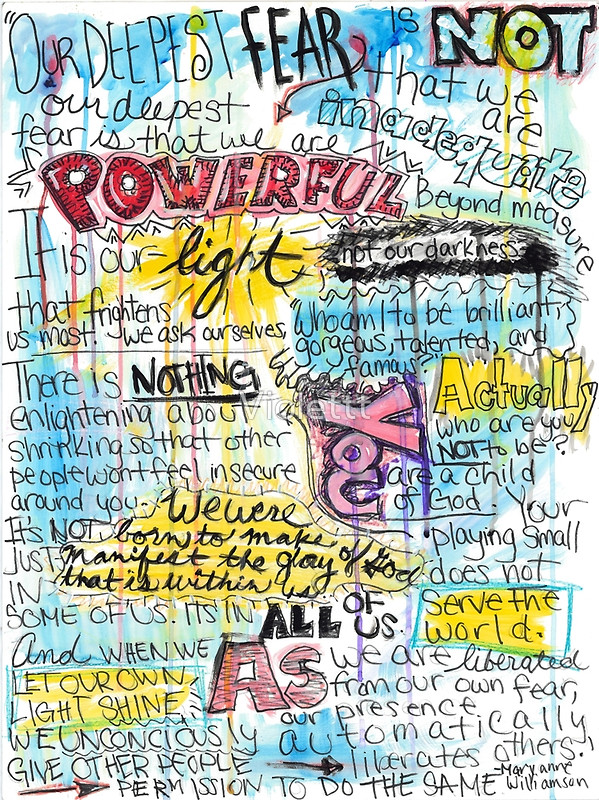 "OUR DEEPEST FEAR IS NOT
that we are inadequate
our deepest fear is that we are
POWERFUL
Beyond measure
It is our light
not our darkness
that frightens us most. We ask ourselves,
"Who am I to be brilliant,
gorgeous, talented, and
famous"
Actually
who are you
NOT to be?
YOU
are a child
of God. Your
playing small
does not
serve the
world.
There is NOTHING
enlightening about
shrinking so that other
people wont feel insecure
around you.
We were
born to make
manifest the glory of God
that is within us
It's NOT
JUST
IN
SOME OF US. ITS IN ALL OF US.
And WHEN WE
LET OUR OWN
LIGHT SHINE,
WE UNCONCIOUSLY
GIVE OTHER PEOPLE
PERMISSION TO DO THE SAME
AS
we are liberated
from our own fear,
our presence
automatically
liberates others."
-Maryanne
Williamson
Violettt